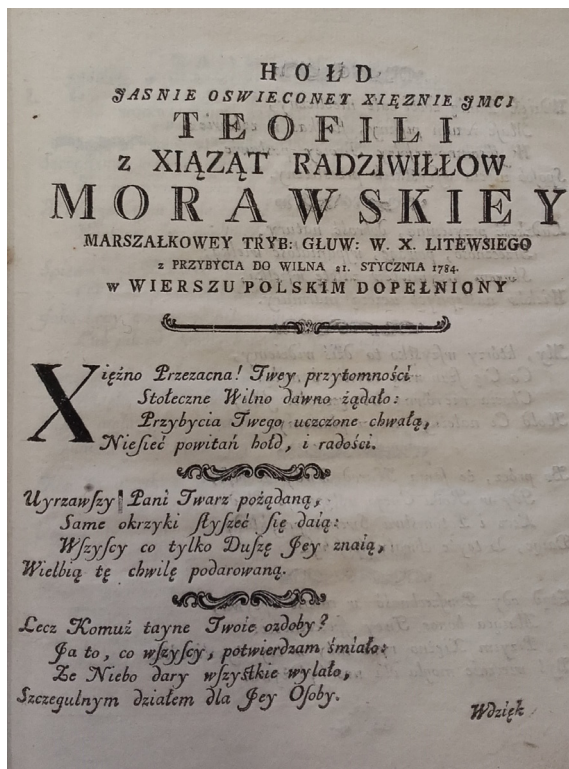 HOŁD
JASNIE OSWIECONEY XIĘZNIE JMCI
TEOFILI
z XIĄZĄT RADZIWIŁŁOW
MORAWSKIEY
MARSZAŁKOWEY TRYB: GŁUW: W. X. LITEWSIEGO
z PRZYBYCIA DO WILNA 21. STYCZNIA 1784.
w WIERSZU POLSKIM DOPEŁNIONY
Xiężno Przezacna! Twey przytomności
Stołeczne Wilno dawno żądało:
Przybycia Twego uczczone chwałą,
Nieſieć powitań hołd, i radości.
Uyrzawſzy Pani Twarz pożądaną,
Same okrzyki ſłyſzeć ſię daią:
Wſzyſcy co tylko Duſzę Jey znaią,
Wielbią tę chwilę podarowaną.
Lecz Komuż tayne Twoie ozdoby?
Ja to, co wſzyſcy, potwierdzam śmiało:
Ze Niebo dary wſzyſtkie wylało,
Szczegulnym działem dla Jey Oſoby.
Wdzięk